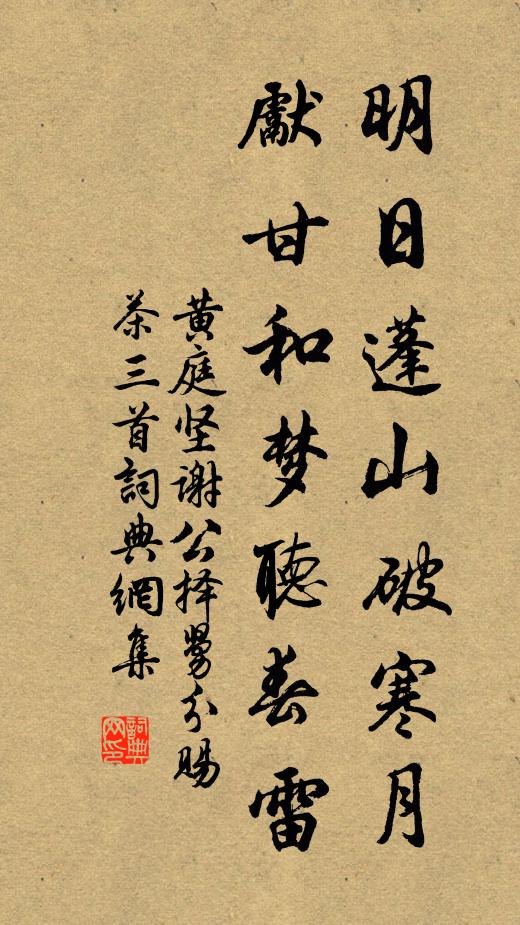 明日蓬山破寒月
獻甘和梦聽春雷
黄庭坚谢公择舅分赐
茶三首詞典網集
詞典网印